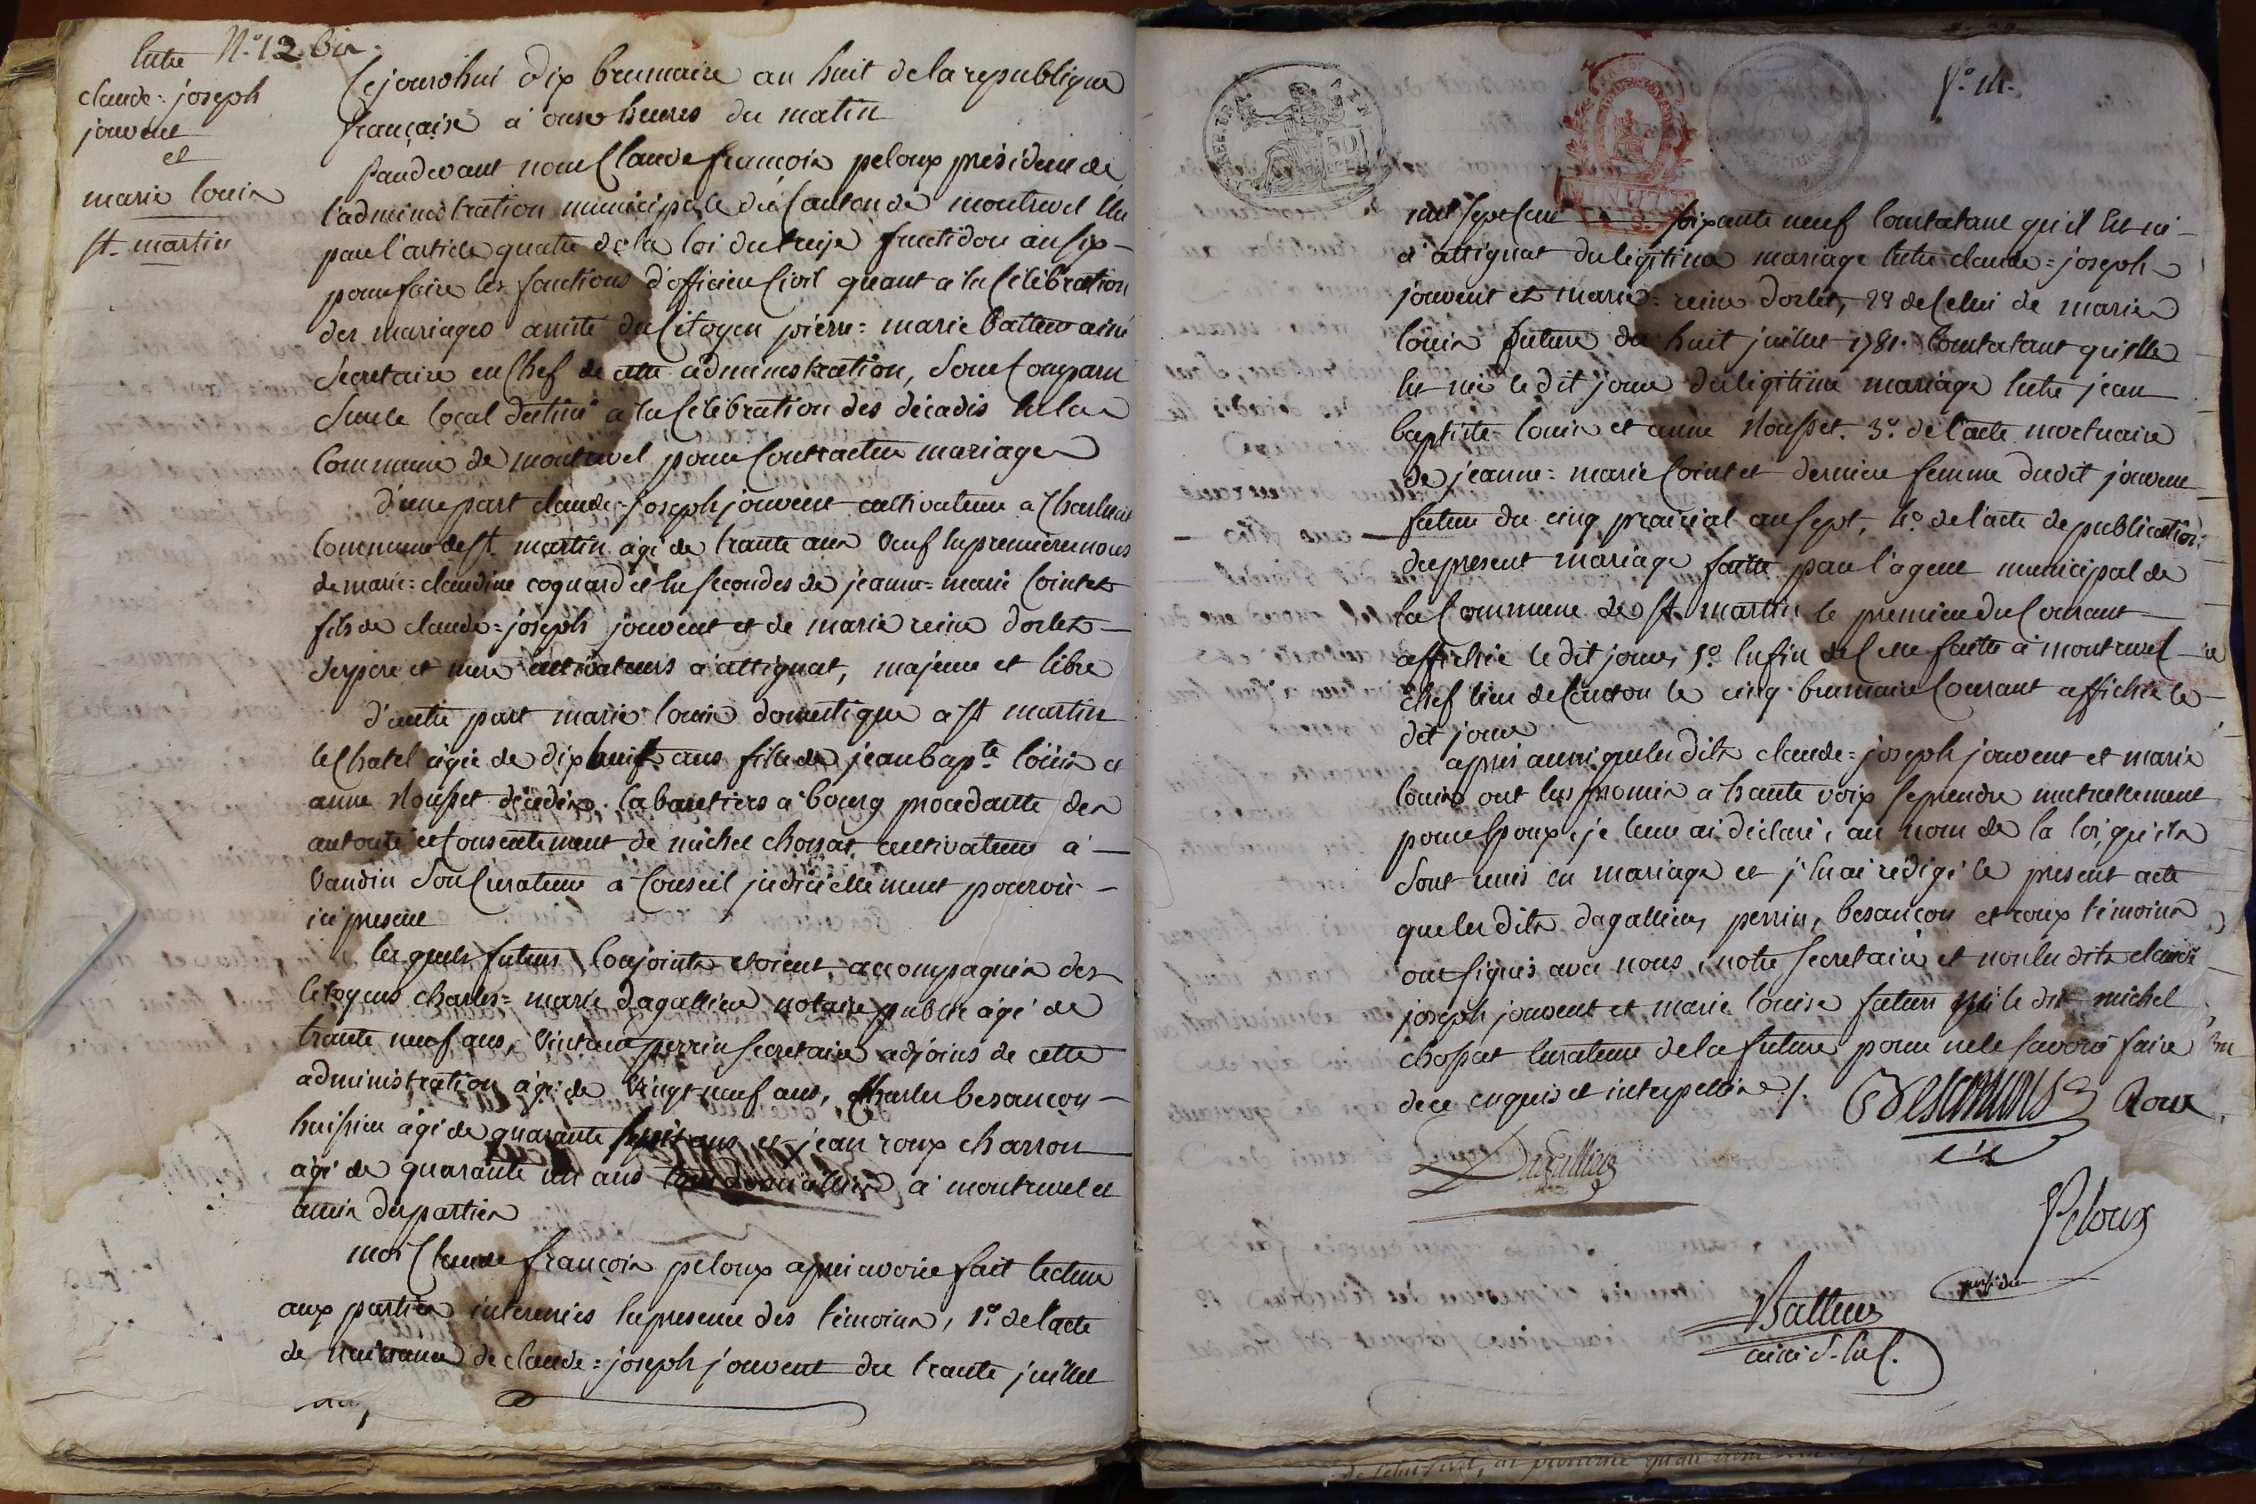 N.° 12. bis
Entre
claude=joseph
jouvent
et
marie louis
st. martin
Cejourdhui dix brumaire an huit de la republique
française à onze heures du matin
Pardevant nous Claude françois peloux président de
l'administration municipale du Canton de montrevel Elu
par l'article quatre de la loi du treize fructidor an six
pour faire les fonctions d'officier Civil quant a la Célébration
des mariages assisté du Citoyen pierre=marie batteur ainé
Secretaire en Chef de administration, Sont Comparu
Sur le local destiné a la Célébration des décadis En la
Commune de montrevel pour Contracter mariage
d'une part claude=joseph jouvent cultivateur a
Commune de st. martin agé de trante ans Veuf En premieres noces
de marie=claudine coquard et En secondes de jeanne=marie Cointet
fils de claude=joseph jouvent et de marie reine dorlet
Ses pere et mere cultivateurs a attignat, majeur et libre
d'autre part marie louis domestique a st martin
le Chatel agée de dix huit ans fille de jean bapte. louis et
anne Mousset décédés Cabaretiers a bourg procedante des
autorité et Consentement de michel chossat cultivateur a
Vandin Son Curateur a Conseil judiciellement pourvu
ici present
les quels futurs Conjoints etoient accompagnés des
Citoyens charles=marie dagallier notaire public agé de
trante neuf ans, Vincent perrin secretaire adjoins de cette
administration agé de Vingt-neuf ans, Charles besançon
huissier agé de quarante sept ans et jean roux charron
agé de quarante un ans tous domiciliés a montrevel et
amis des parties
moi Claude françois peloux apres avoir fait lecture
aux parties interessées En presence des témoins, 1°. de l'acte
de naissance de claude=joseph jouvent du trante juillet
f.° 14.
mil sept cent soixante neuf Constatant qu'il Est né
a attignat du légitime mariage Entre claude=joseph
jouvent et marie=reine dorlet, 2° de Celui de marie
louis future du huit juillet 1781. Constatant qu'elle
Est née le dit jour du légitime mariage Entre jean
baptiste louis et anne Mousset. 3°. de l'acte mortuaire
de jeanne=marie Cointet derniere femme dudit jouvent
futur du cinq prairial an sept, 4°. de l'acte de publication
du present mariage faitte par l'agent municipal de
la Commune de st. martin le premier du Courant
affichée le dit jour, 5°. Enfin de Celle faitte a montrevel
chef lieu de Canton le cinq brumaire Courant affichée le
dit jour
après aussi que les dits claude=joseph jouvent et marie
louis ont Eus promis a haute voix se prendre mutuellement
pour Epoux, je leur ai déclaré, au nom de la loi, qu'ils
Sont unis en mariage et j'En ai rédigé le present acte
que les dits dagallier, perrin, besançon et roux témoins
ont signés avec nous, notre secretaire et non les dits claude
joseph jouvent et marie louise futurs ni le dit michel
chossat Curateur de la future pour ne le savoir faire
de ce enquis et interpellés ./.
Roux
Dagallier
Peloux
président
Batteur
ainé S. En C.